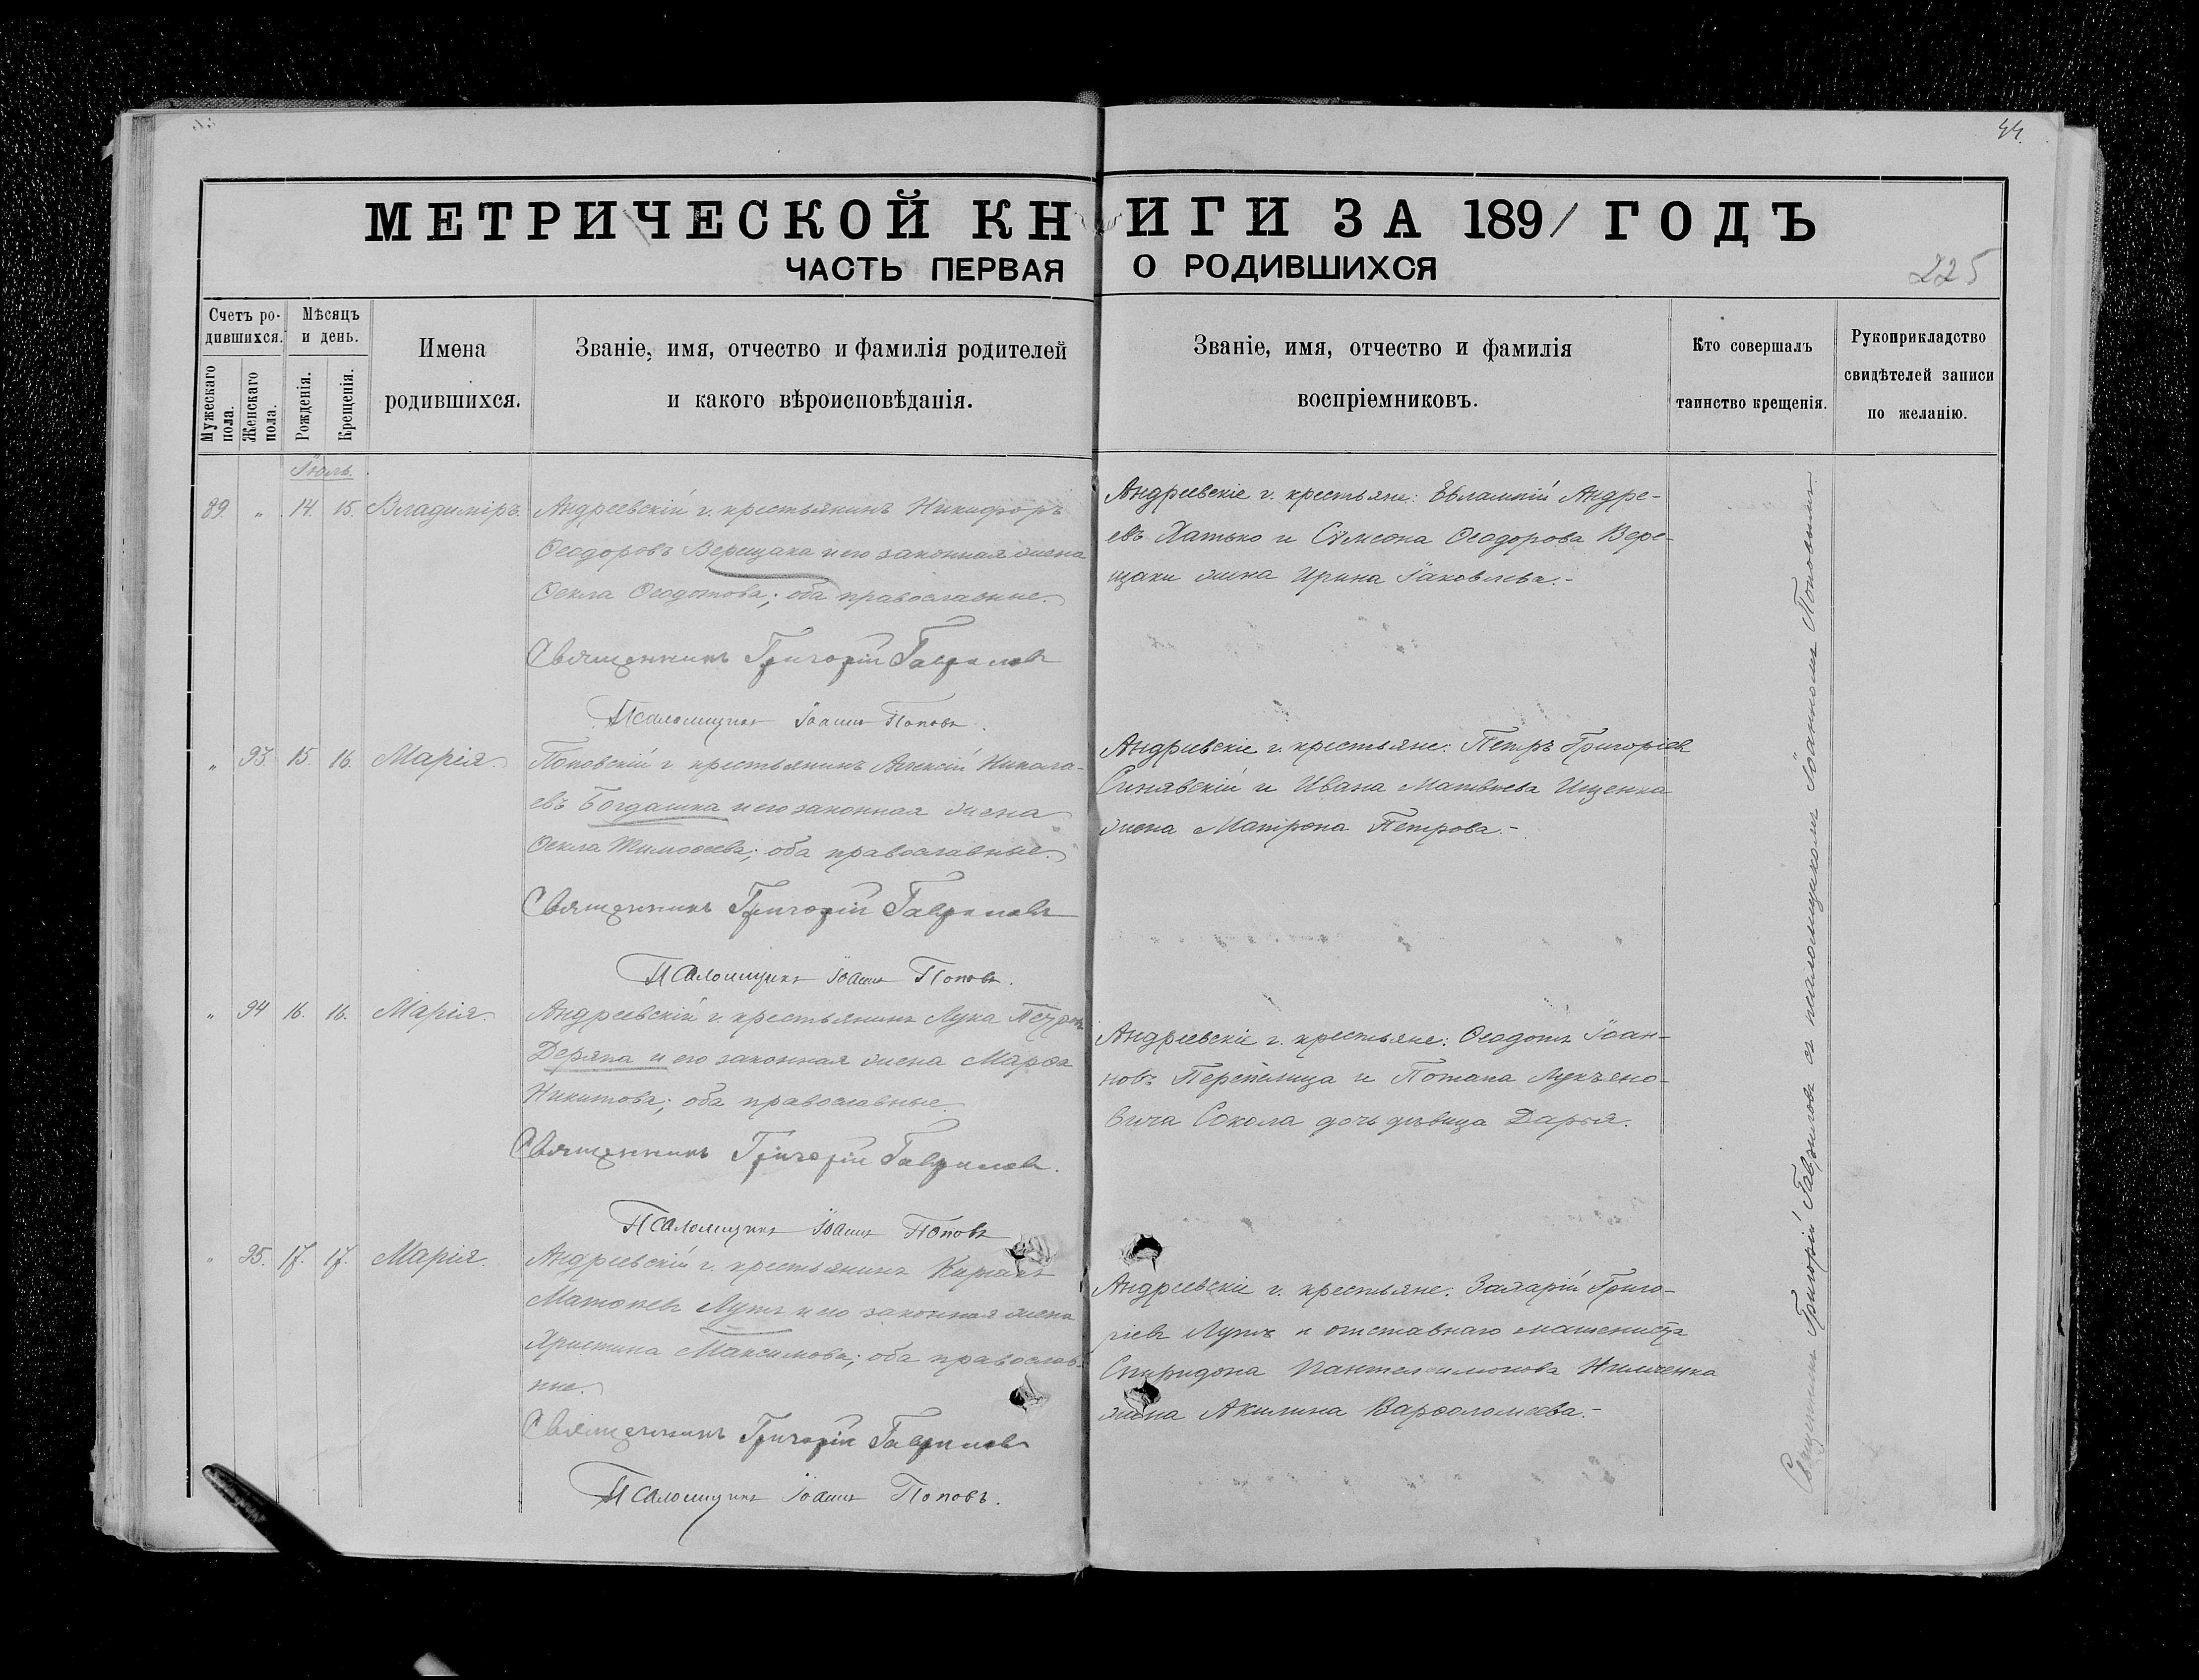 44.
МЕТРИЧЕСКОЙ КНИГИ ЗА 1891 ГОДЪ
ЧАСТЬ ПЕРВАЯ О РОДИВШИХСЯ
225
Счетъ родившихся.
Мужескаго пола.
Женскаго пола.
Мѣсяцъ и день.
Рожденія.
Крещенія.
Имена родившихся.
Званіе, имя, отчество и фамилія родителей
и какого вѣроисповѣданія.
Званіе, имя, отчество и фамилія
воспріемниковъ.
Кто совершалъ
таинство крещенія.
Рукоприкладство
свидѣтелей записи
по желанію.
Іюль.
89. " 14. 15. Владиміръ. Андреевскій г. крестьянинъ Никифоръ
Ѳеодоровъ Верещака и его законная жена
Ѳекла Ѳеодотова; оба православные.
Священникъ Григорій Гавриловъ
Псаломщикъ Іоаннъ Поповъ.
Андреевскіе г. крестьяне: Евлампій Андре-
евъ Хатько и Сѵмеона Ѳеодорова Вере-
щаки жена Ирина Іаковлева.-
" 93. 15. 16. Марія. Поповскій г. крестьянинъ Алексій Никола-
евъ Богдашка и его законная жена
Ѳекла Тимоѳеева; оба православные.
Священникъ Григорій Гавриловъ
Псаломщикъ Іоаннъ Поповъ.
Андреевскіе г. крестьяне: Петръ Григоріевъ
Синявскій и Ивана Матвѣева Ищенка
жена Матрона Петрова.-
" 94 16. 16. Марія. Андреевскій г. крестьянинъ Лука Петровъ
Деряпа и его законная жена Марѳа
Никитова; оба православные.
Священникъ Григорій Гавриловъ.
Псаломщикъ Іоаннъ Поповъ
Андреевскіе г. крестьяне: Ѳеодотъ Іоан-
новъ Перепелица и Потапа
вича Сокола дочь дѣвица Дарія.
" 95. 17. 17. Марія. Андреевскій г. крестьянинъ Киріакъ
Лутъ и его законная жена
Христина Максимова; оба православ-
ные.
Священникъ Григорій Гавриловъ
Псаломщикъ Іоаннъ Поповъ.
Андреевскіе г. крестьяне: Захарій Григо-
ріевъ Лутъ и отставнаго
Спиридона Пантелеимонова
жена Акилина Варѳоломеева.-
Священникъ Григорій Гавриловъ съ псаломщикомъ Іоанномъ Поповымъ.